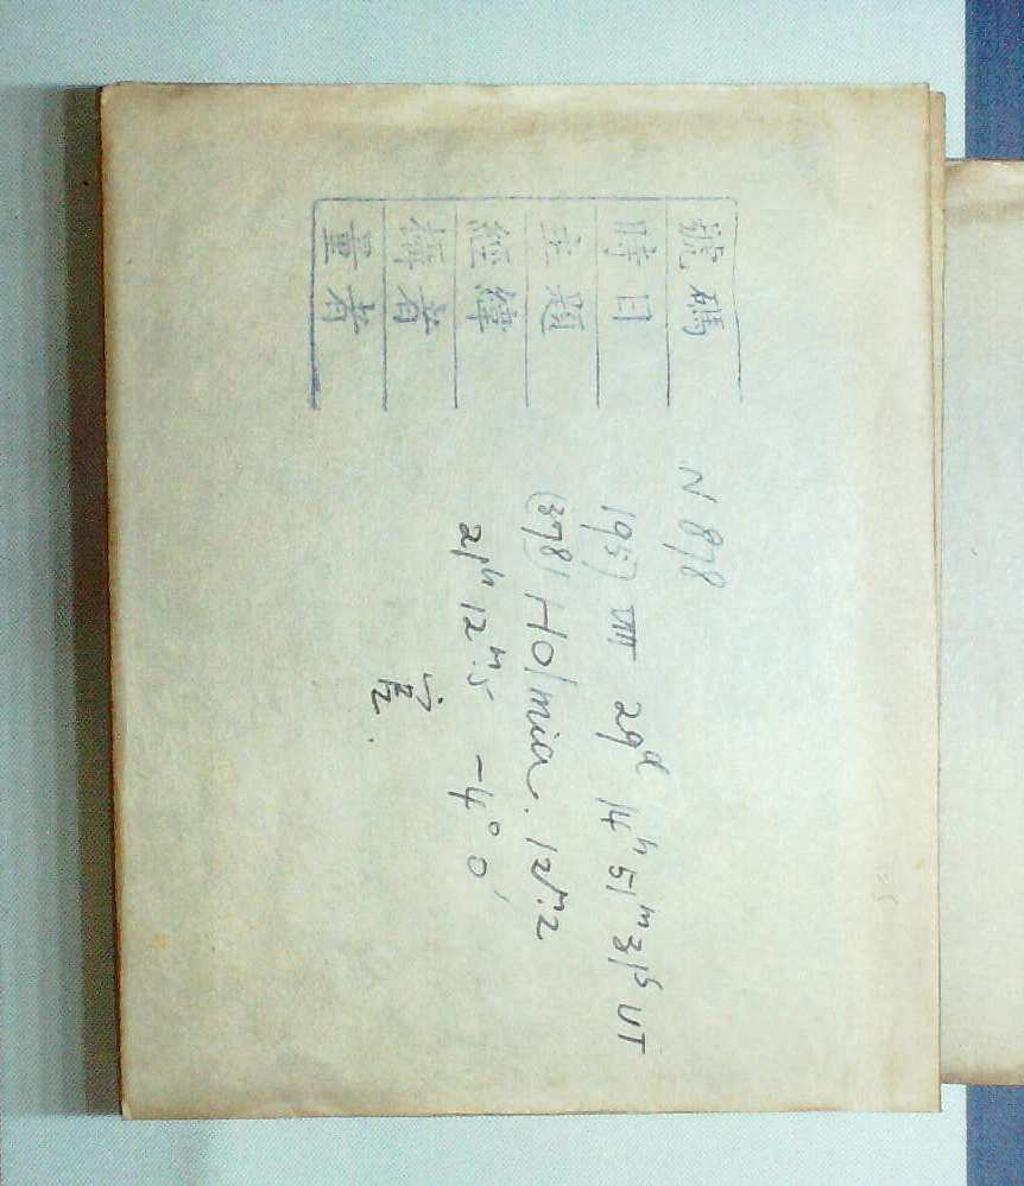 號碼 N 878
時日 1957 VIII 29ᵈ 14ʰ 51ᵐ 31ˢ UT
主題 (378) Holmia. 12ᵐ.2
經緯 21ʰ 12ᵐ.5 -4° 0'
攝者
量者